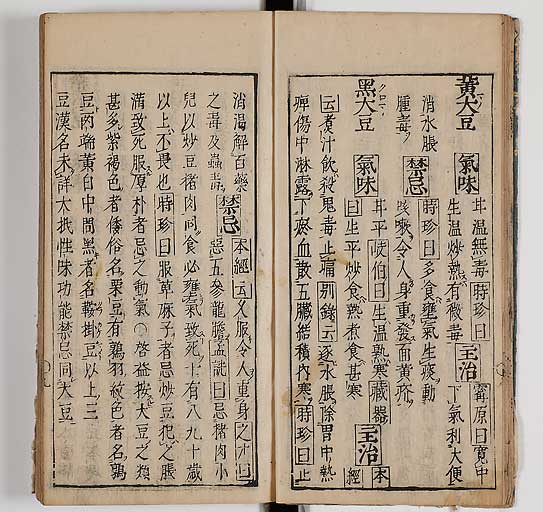 黃大豆 氣味 甘溫無毒時珍曰
生溫炒熱有微毒 主治 寗原曰寬中
下氣利大便
消水脹
腫毒 禁忌 時珍曰多食壅氣生痰動
咳嗽令人身重發面黃疥
黑大豆 クロマメ 氣味 甘平岐伯曰生溫熟寒藏器
曰生平炒食熱煮食甚寒 主治 本
經
云煮汁飲殺鬼毒止痛別錄云逐水脹除胃中熱
痺傷中淋露下瘀血散五臟結積內寒時珍曰止
消渴解百藥
之毒及蟲毒 禁忌 本經云久服令人重身之才曰
惡五參龍膽孟詵曰忌猪肉小
兒以炒豆猪肉同食必壅氣致死十有八九十歲
以上不畏也時珍曰服萆麻子者忌炒豆犯之脹
滿致死服厚朴者忌之動氣○啓益按大豆之類
甚多紫褐色者倭俗名栗豆有鶉羽紋色者名鶉
豆両端黃白中間黑者名鞍掛豆以上三
豆漢名未詳大抵性味功能禁忌同大豆